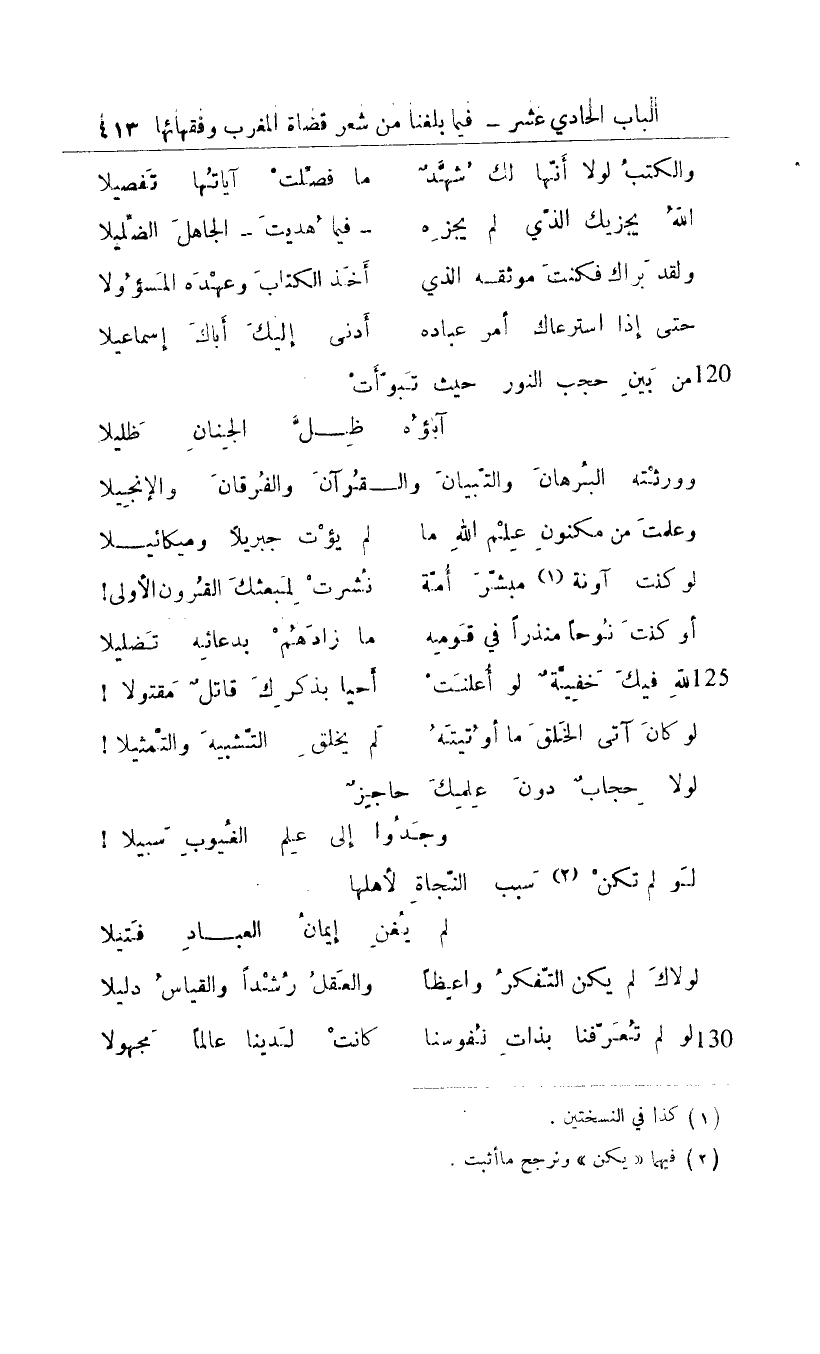 الباب الحادي عشر – فيما بلغنا من شعر قضاة المغرب وفقهائها ٤١٣
والكتبُ لولا أنّها لك شُهَّدٌ ما فصّلتْ آياتُها تَفصيلا
اللهُ يجزيك الذّي لم يجزِه – فيما هُديتَ – الجاهلَ الضّليلا
ولقد بَراك فكنتَ موثقه الذي أخَذ الكتابَ وعهْدَه المَسؤُولا
حتى إذا استرعاك أمر عباده أدنى إليكَ أباكَ إسماعيلا
120 من بَينِ حجب النور حيث تَبوّأَتْ
آباؤُه ظِلَّ الجِنانِ ظَليلا
وورثْته البُرهانَ والتّبيانَ والقُرآنَ والفُرقانَ والإنجِيلا
وعلمتَ من مكنونِ عِلْم اللهِ ما لم يؤْت جبريلاً وميكائيلا
لو كنت آونة (١) مبشّرَ أُمّة نُشرتْ لِمَبعثكَ القُرون الأولى!
أو كنتَ نُوحاً منذراً في قَومِه ما زادَهُمْ بدعائِه تَضليلا
125 للّهِ فيكَ خَفِيّةٌ لو أُعلنَتْ أحيا بذكرِكَ قاتلٌ مَقتولا !
لو كانَ آتى الخَلقَ ما أُوتيتَهُ لم يَخلقِ التّشبيهَ والتّمثيلا !
لولا حِجابٌ دونَ عِلمِكَ حاجِزٌ
وجَدُوا إلى عِلم الغُيوبِ سَبيلا !
لَو لم تكنْ (٢) سَبب النّجاةِ لأهلها
لم يُغنِ إيمانُ العبادِ فَتيلا
لولاكَ لم يكن التّفكرُ واعِظاً والعَقلُ رُشْداً والقياسُ دليلا
130 لو لم تُعَرّفنا بذاتِ نُفوسنا كانتْ لَدينا عالماً مَجهولا
(١) كذا في النسختين .
(٢) فيهما « يكن » ونرجح ما أثبت .